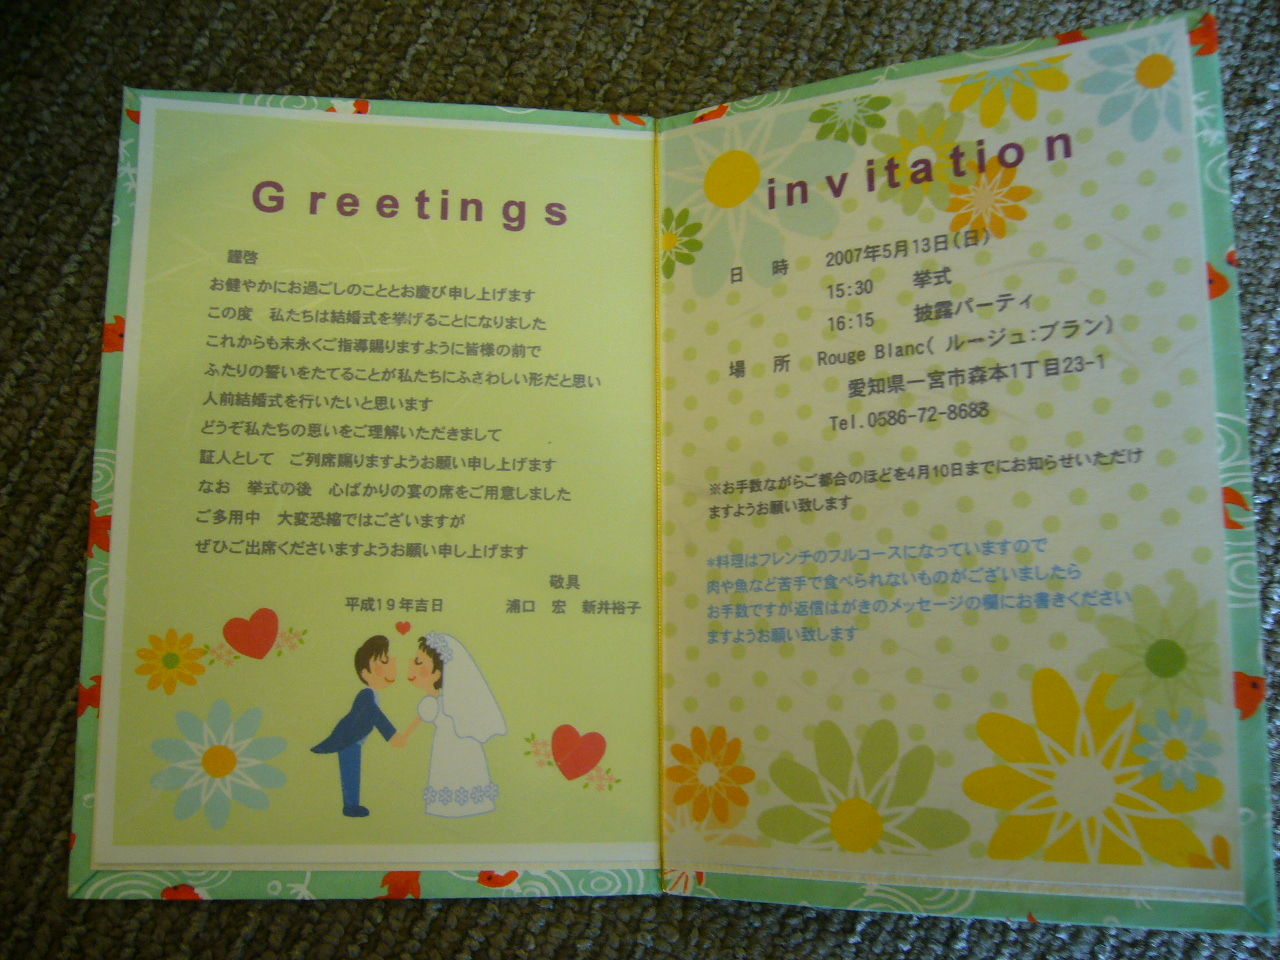 Greetings
謹啓
お健やかにお過ごしのこととお慶び申し上げます
この度　私たちは結婚式を挙げることになりました
これからも末永くご指導賜りますように皆様の前で
ふたりの誓いをたてることが私たちにふさわしい形だと思い
人前結婚式を行いたいと思います
どうぞ私たちの思いをご理解いただきまして
証人として　ご列席賜りますようお願い申し上げます
なお　挙式の後　心ばかりの宴の席をご用意しました
ご多用中　大変恐縮ではございますが
ぜひご出席くださいますようお願い申し上げます
敬具
平成19年吉日　浦口　宏　新井裕子
invitation
日　時　2007年5月13日(日)
15:30　挙式
16:15　披露パーティ
場　所　Rouge Blanc( ルージュ:ブラン)
愛知県一宮市森本1丁目23-1
Tel.0586-72-8688
※お手数ながらご都合のほどを4月10日までにお知らせいただけ
ますようお願い致します
*料理はフレンチのフルコースになっていますので
肉や魚など苦手で食べられないものがございましたら
お手数ですが返信はがきのメッセージの欄にお書きください
ますようお願い致します